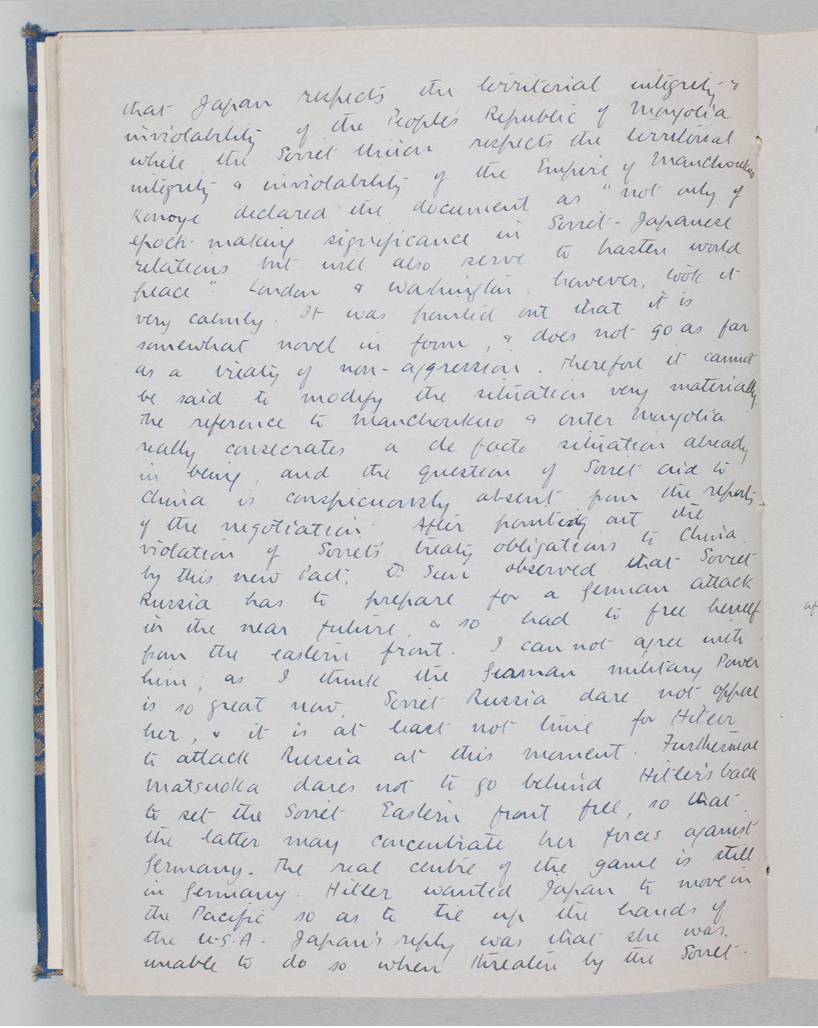 that Japan respects the territorial integrity &
inviolability of the People's Republic of Mongolia
while the Soviet Union respects the territorial
integrity & inviolability of the Empire of Manchoukuo
Konoye declared the document as "not only of
epoch-making significance in Soviet-Japanese
relations but will also serve to hasten world
peace". London & Washington, however, took it
very calmly. It was pointed out that it is
somewhat novel in form, & does not go as far
as a treaty of non-aggression. Therefore it cannot
be said to modify the situation very materially.
The reference to Manchoukuo & outer Mongolia
really consecrates a de facto situation already
in being, and the question of Soviet aid to
China is conspicuously absent from the reports
of the negotiation. After pointing out the
violation of Soviet's treaty obligations to China
by this new Pact, Dr Sun observed that Soviet
Russia has to prepare for a German attack
in the near future, & so had to free herself
from the eastern front. I can not agree with
him; as I think the German military Power
is so great now, Soviet Russia dare not oppose
her, & it is at least not time for Hitler
to attack Russia at this moment. Furthermore
Matsuoka dares not to go behind Hitler's back
to set the Soviet Eastern front free, so that
the latter may concentrate her forces against
Germany. The real centre of the game is still
in Germany. Hitler wanted Japan to move in
the Pacific so as to tie up the hands of
the U.S.A. Japan's reply was that she was
unable to do so when threaten by the Soviet.